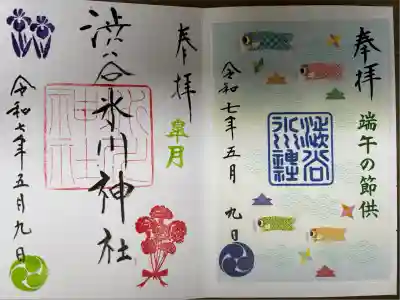 奉拝
端午の節供
澁谷
氷川神社
令和七年五月九日
奉拝
皐月
渋谷氷川神社
令和七年五月九日